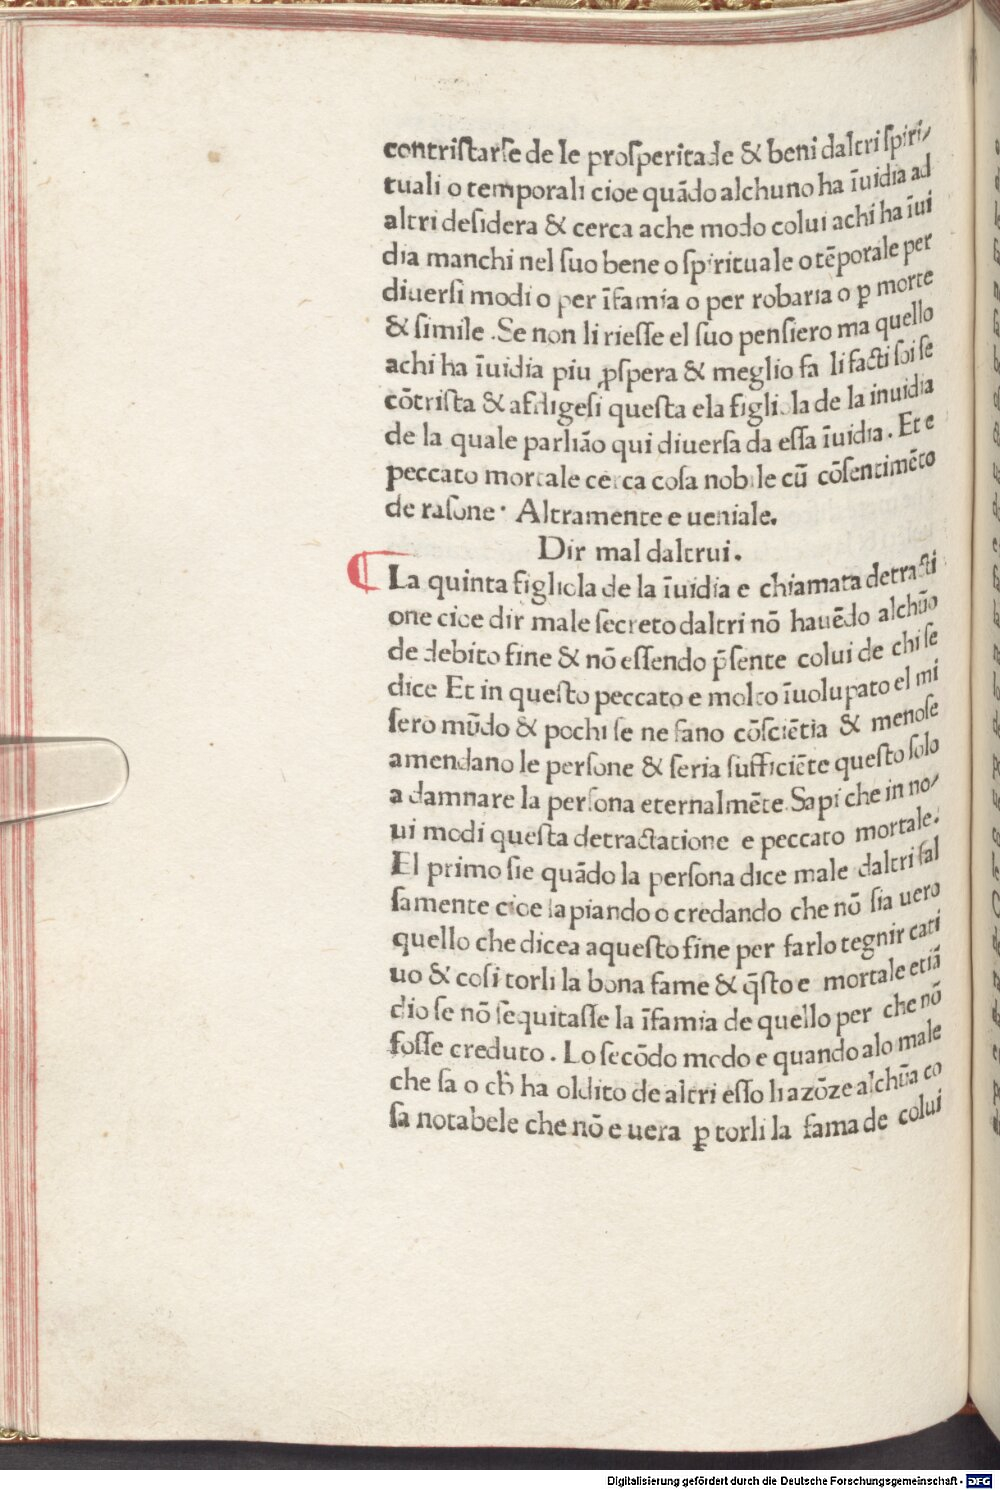 contriſtarſe de le proſperitade & beni daltri ſpiri/
tuali o temporali cioe quādo alchuno ha īuidia ad
altri deſidera & cerca ache modo colui achi ha īui
dia manchi nel ſuo bene o ſpirituale o tēporale per
diuerſi modi o per īfamia o per robaria o ꝑ morte
& ſimile . Se non li rieſſe el ſuo penſiero ma quello
achi ha īuidia piu ꝓſpera & meglio fa li facti ſoi ſe
cōtriſta & affligeſi queſta ela figliola de la inuidia
de la quale parliāo qui diuerſa da eſſa īuidia . Et e
peccato mortale cerca coſa nobile cū cōſentimēto
de raſone · Altramente e ueniale.
Dir mal daltrui .
La quinta figliola de la īuidia e chiamata detracti
one cioe dir male ſecreto daltri nō hauēdo alchūo
de debito fine & nō eſſendo p̄ſente colui de chi ſe
dice Et in queſto peccato e molto īuolupato el mi
ſero mūdo & pochi ſe ne fano cōſciētia & menoſe
amendano le perſone & ſeria ſufficiēte queſto ſolo
a damnare la perſona eternalmēte. Sapi che in no/
ui modi queſta detractatione e peccato mortale.
El primo ſie quādo la perſona dice male daltri fal
ſamente cioe ſapiando o credando che nō ſia uero
quello che dicea aqueſto fine per farlo tegnir cati
uo & coſi torli la bona fame & q̄ſto e mortale etiā
dio ſe nō ſequitaſſe la īfamia de quello per che nō
foſſe creduto . Lo ſecōdo modo e quando alo male
che ſa o cħ ha oldito de altri eſſo li azōze alchūa co
ſa notabele che nō e uera ꝑ torli la fama de colui
Digitalisierung gefördert durch die Deutsche Forschungsgemeinschaft - DFG